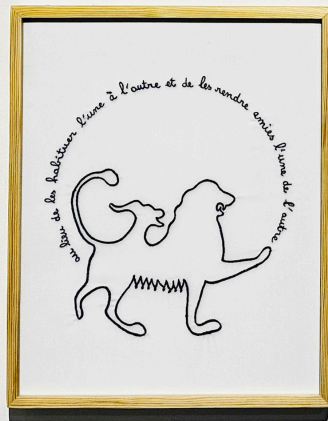 au lieu de les habituer l'une à l'autre et de les rendre amies l'une de l'autre